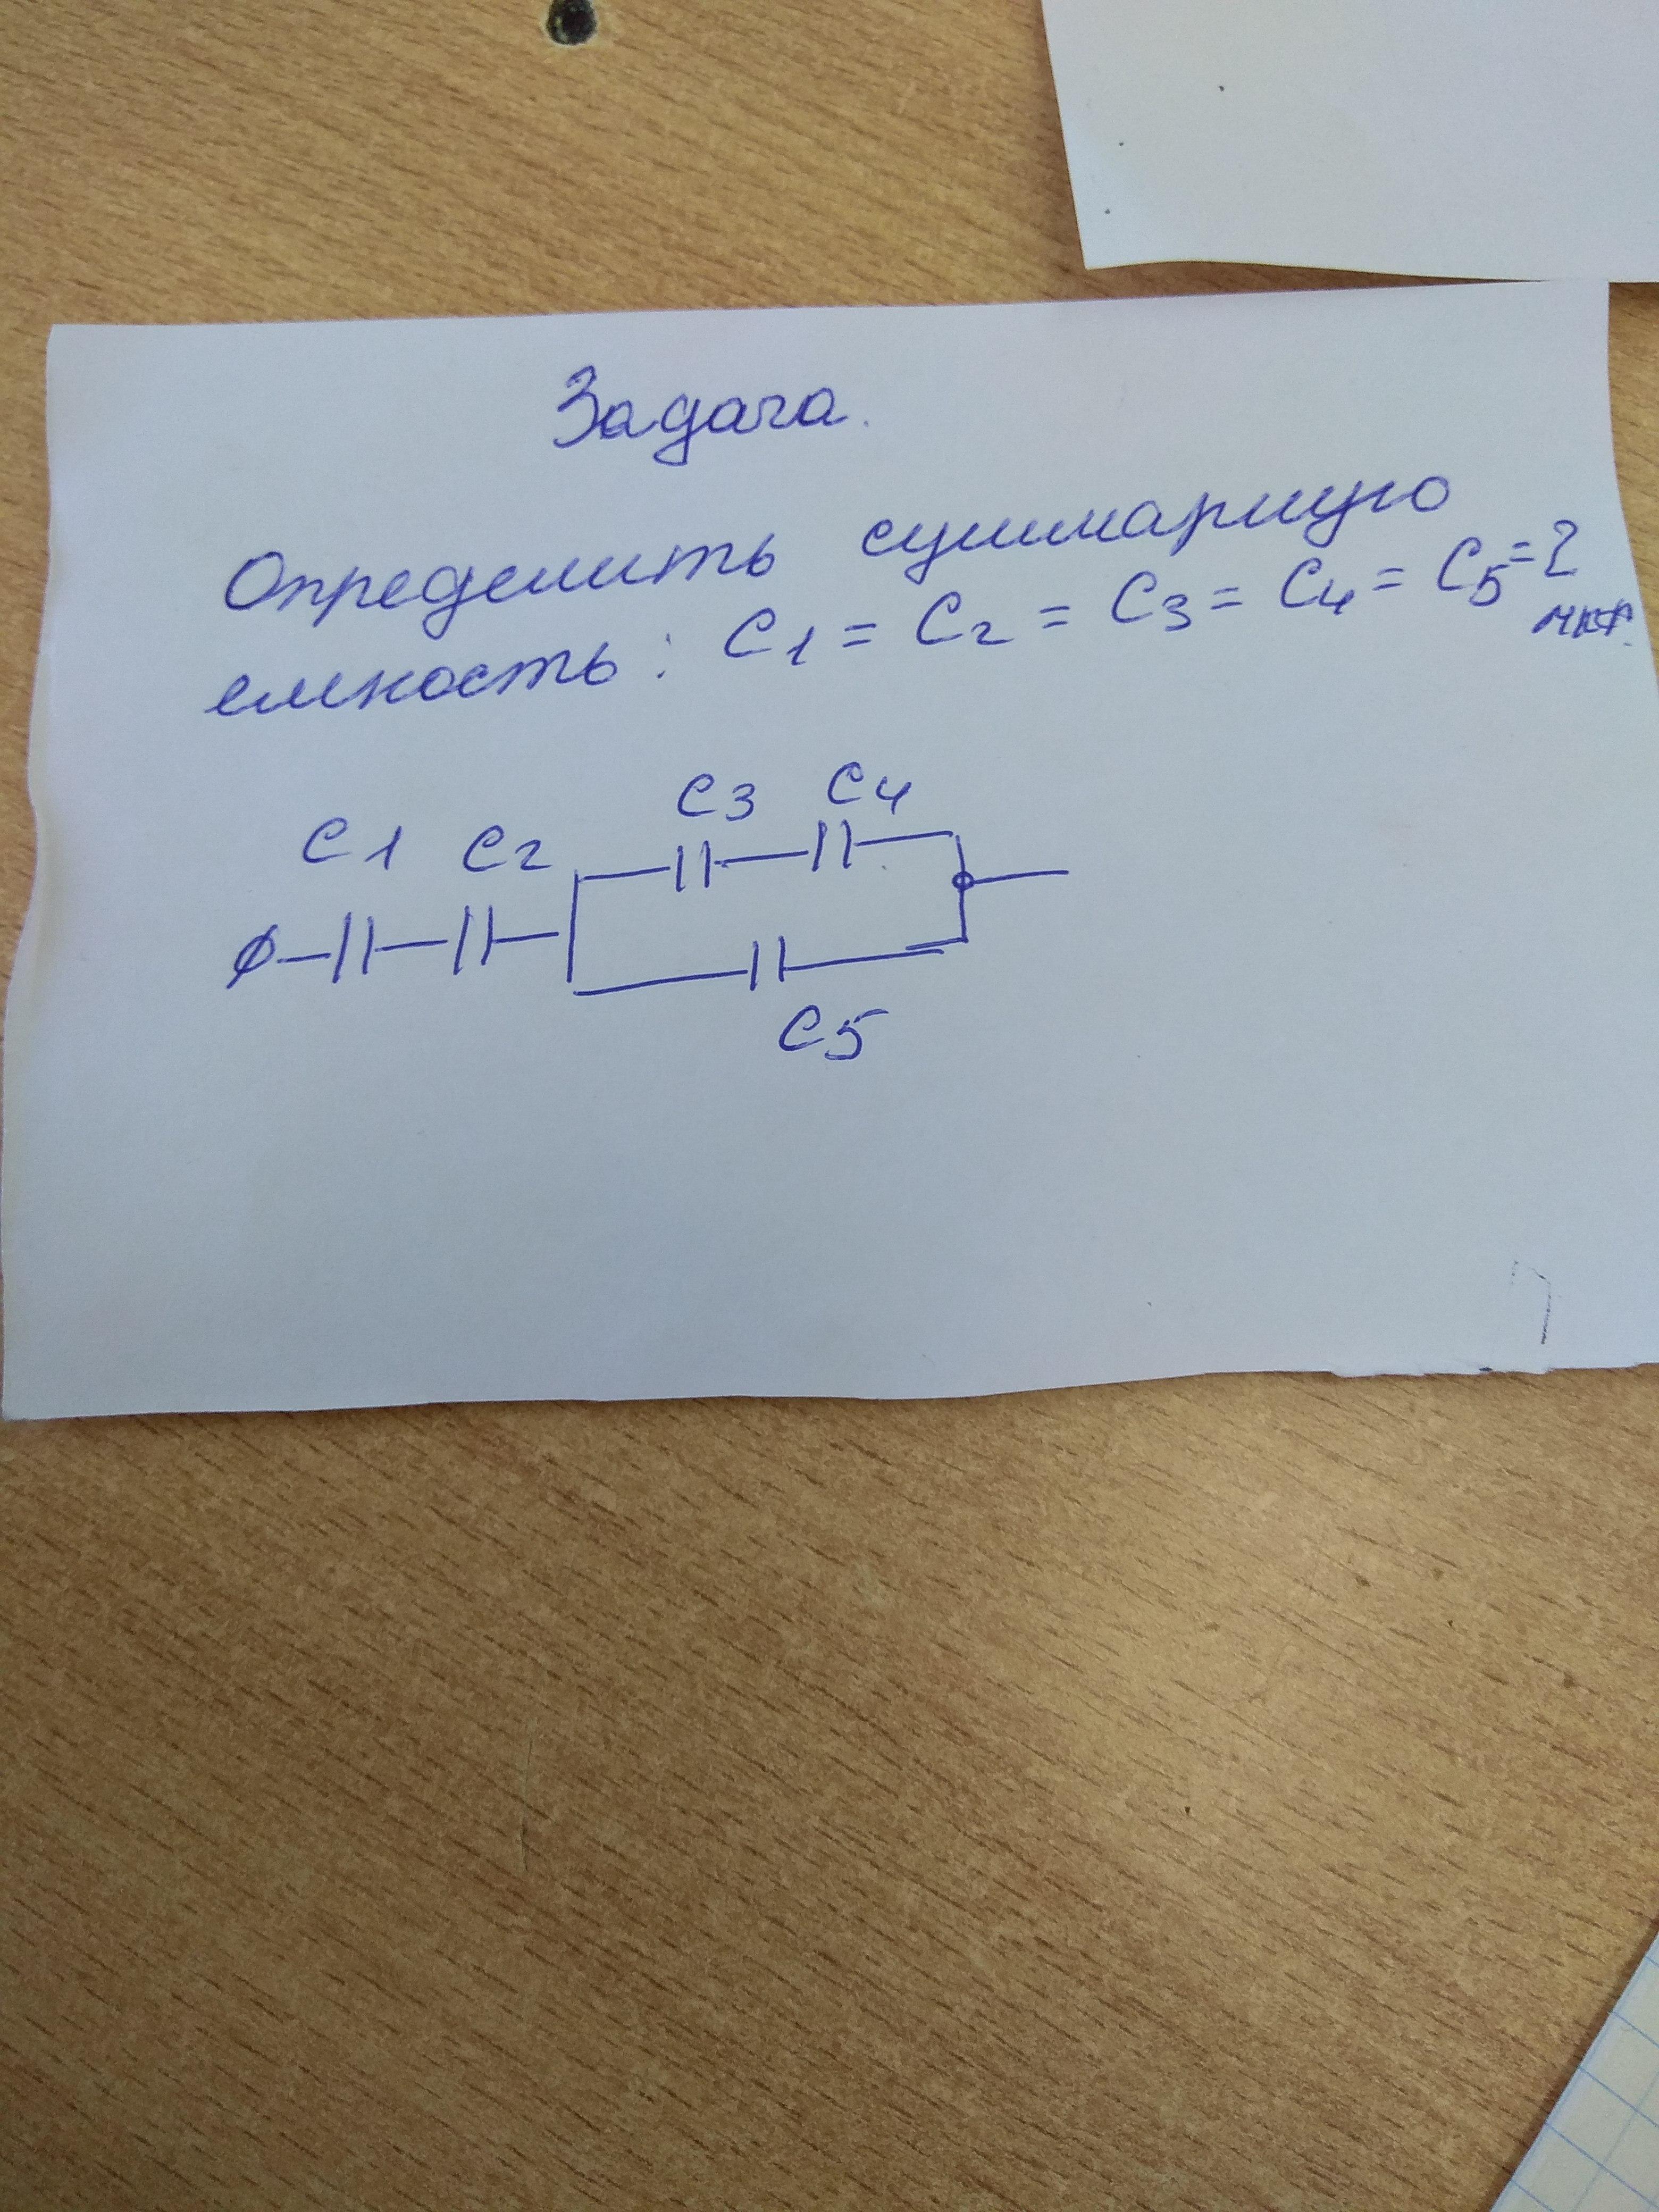 Задача.
Определить суммарную
емкость: C1 = C2 = C3 = C4 = C5 = 2
мкф.
C3 C4
C1 C2
C5